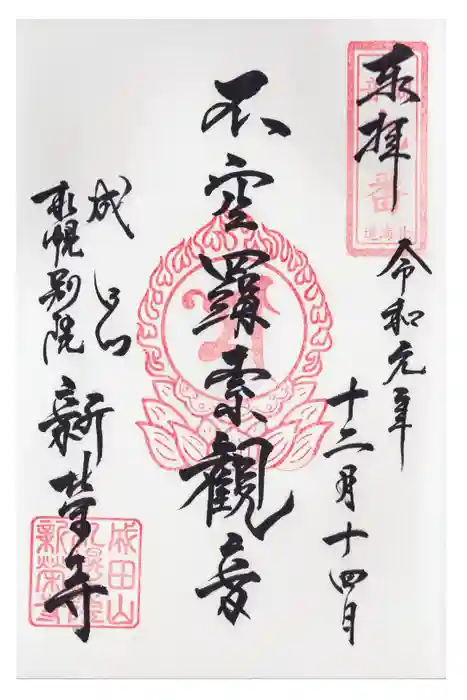 奉拝
令和元年
十二月十四日
不空羂索觀音
成田山
札幌別院 新栄寺
成田山
新榮寺